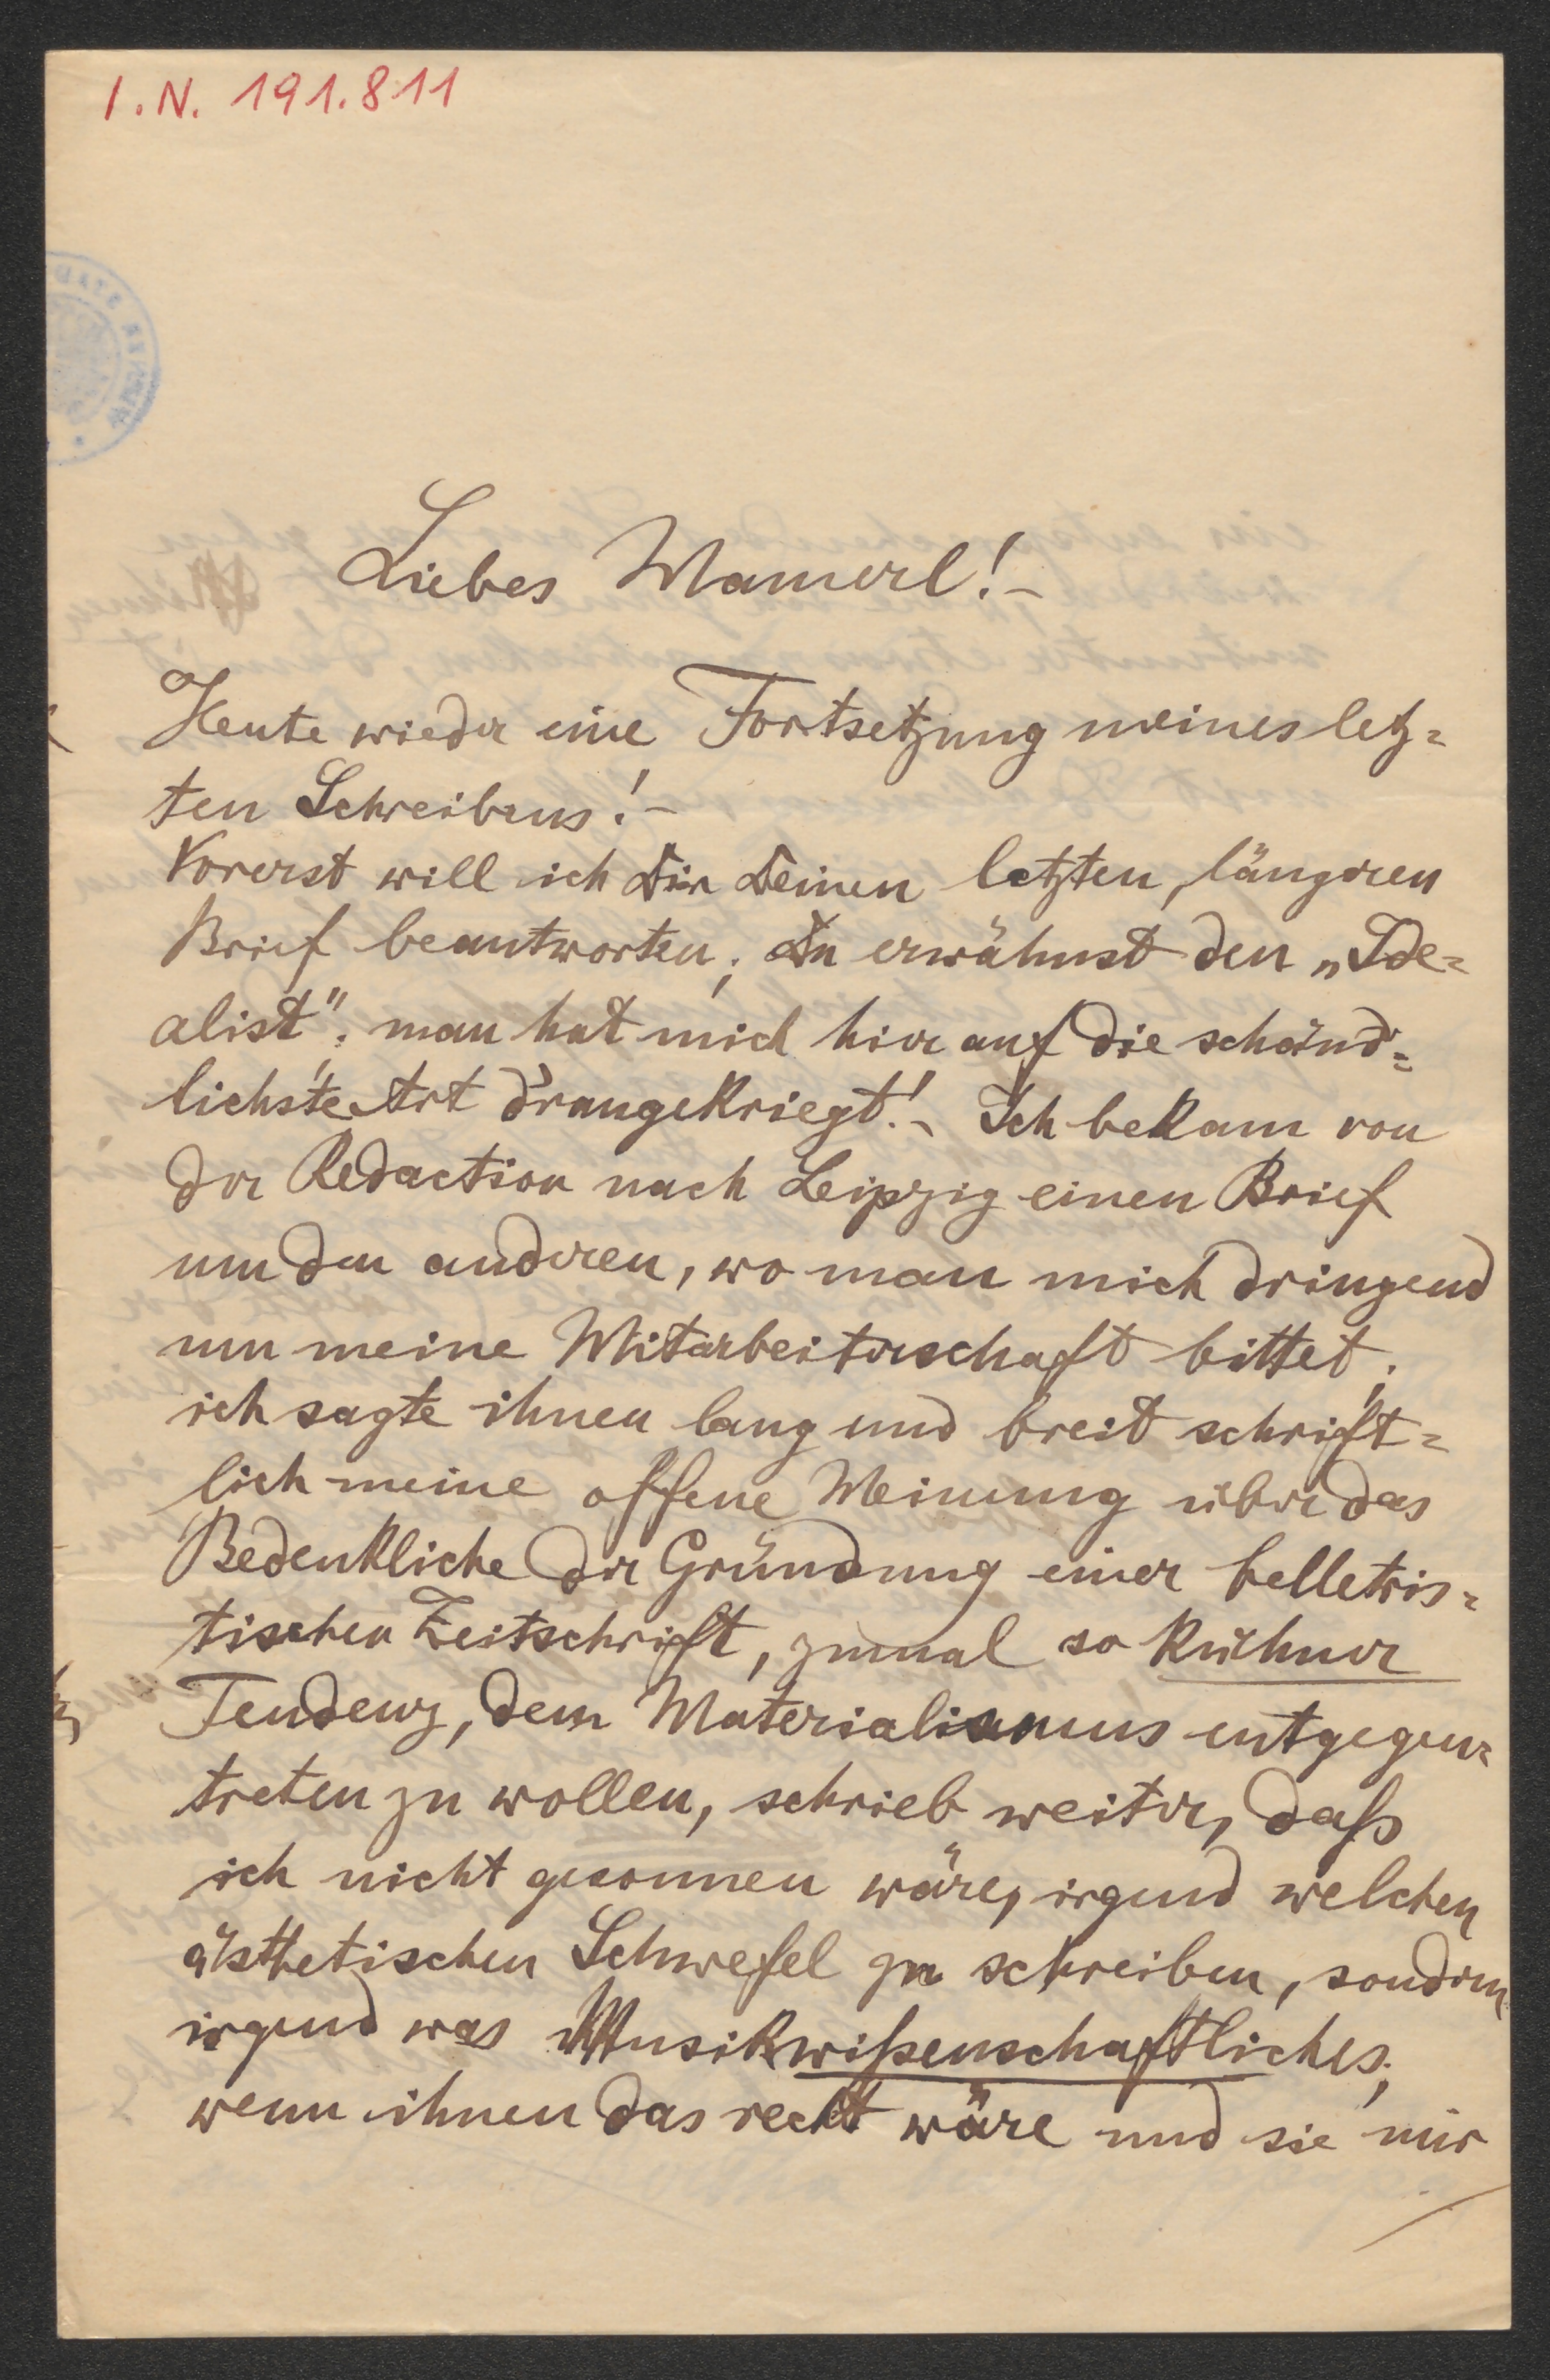 I. N. 191.811
Liebes Mamerl! –
Heute wieder eine Fortsetzung meines letz=
ten Schreibens! –
Vorerst will ich Dir Deinen letzten, längeren
Brief beantworten; Du erwähnst den „Ide=
alist"; man hat mich hier auf die schänd=
lichste Art d'rangekriegt! – Ich bekam von
der Redaction nach Leipzig einen Brief
um den anderen, wo man mich dringend
um meine Mitarbeiterschaft bittet;
ich sagte ihnen lang und breit schrift=
lich meine offene Meinung über das
Bedenkliche der Gründung einer belletris=
tischen Zeitschrift, zumal so kühner
Tendenz, dem Materialismus entgegen=
treten zu wollen, schrieb weiter, daß
ich nicht gesonnen wäre, irgend welchen
ästhetischen Schwefel zu schreiben, sondern
irgend was Musikwißenschaftliches;
wenn ihnen das recht wäre und sie mir